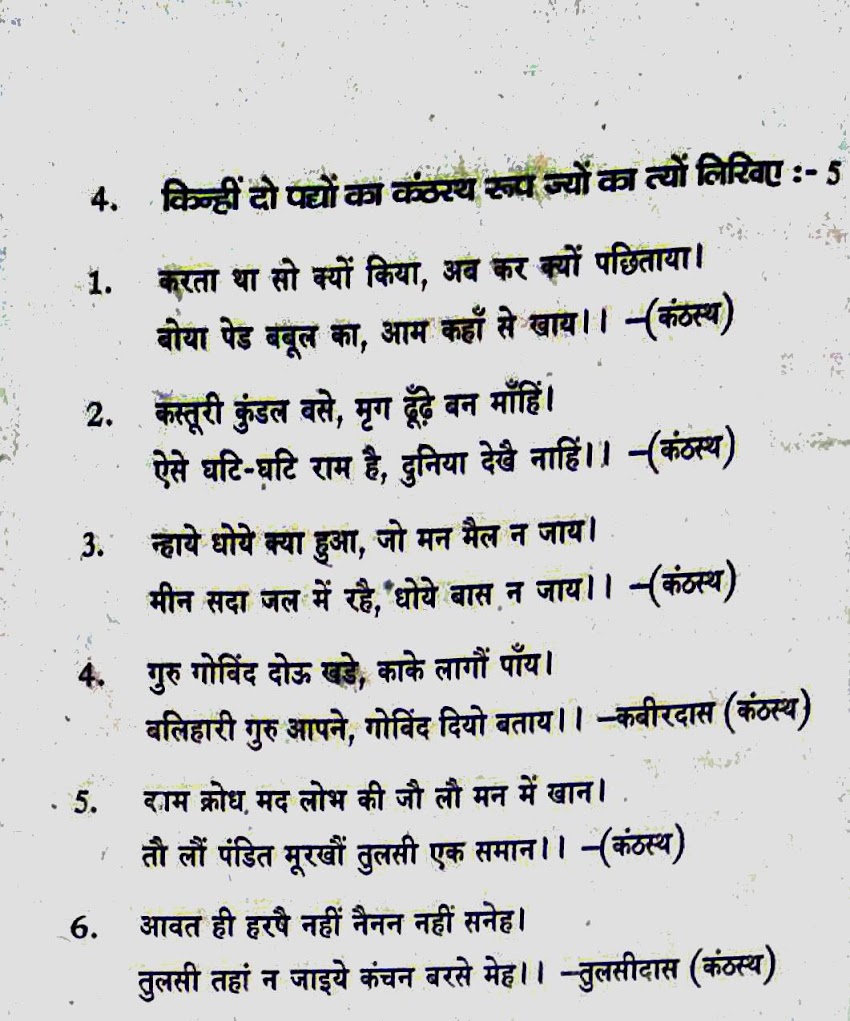 4. किन्हीं दो पद्यों का कंठस्थ रूप ज्यों का त्यों लिखिए :- 5
1. करता था सो क्यों किया, अब कर क्यों पछिताया।
बोया पेड बबूल का, आम कहाँ से खाय।। –(कंठस्थ)
2. कस्तूरी कुंडल बसे, मृग ढूँढ़े बन माँहिं।
ऐसे घटि-घटि राम है, दुनिया देखै नाहिं।। –(कंठस्थ)
3. न्हाये धोये क्या हुआ, जो मन मैल न जाय।
मीन सदा जल में रहै, धोये बास न जाय।। –(कंठस्थ)
4. गुरु गोविंद दोऊ खडे, काके लागौं पाँय।
बलिहारी गुरु आपने, गोविंद दियो बताय।। –कबीरदास (कंठस्थ)
5. काम क्रोध मद लोभ की जौ लौ मन में खान।
तौ लौं पंडित मूरखौं तुलसी एक समान।। –(कंठस्थ)
6. आवत ही हरषै नहीं नैनन नहीं सनेह।
तुलसी तहां न जाइये कंचन बरसे मेह।। –तुलसीदास (कंठस्थ)